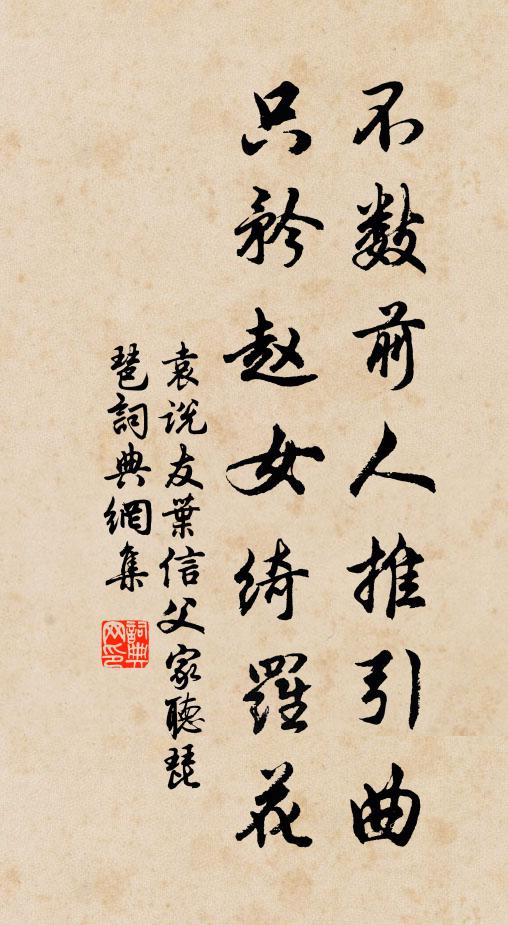 不数前人推引曲
只矜赵女绮羅花
袁说友葉信父家聽琵
琶詞典網集
詞典网印